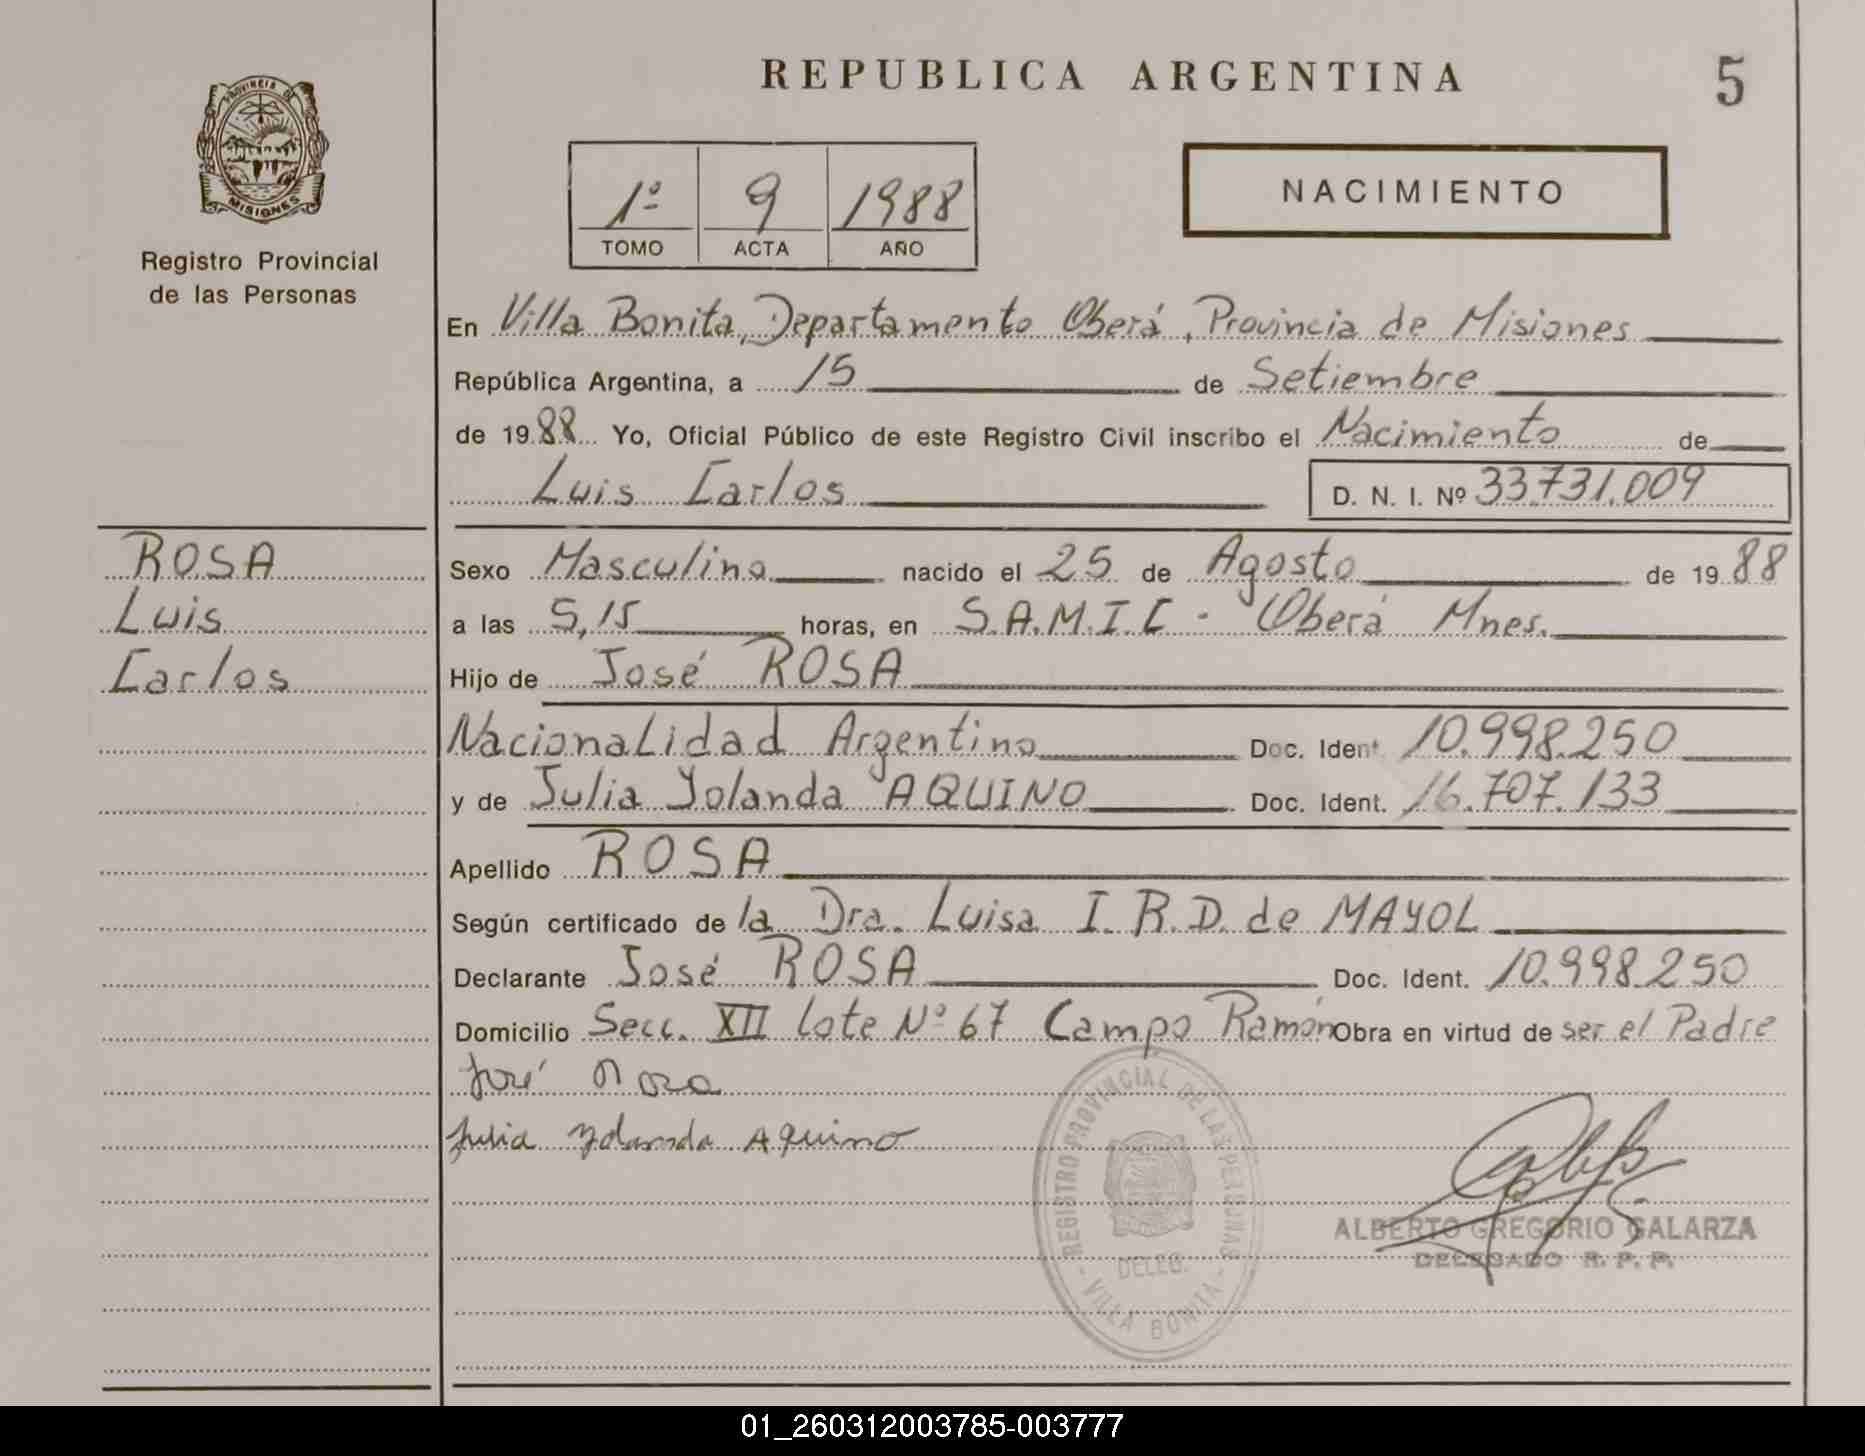 REPUBLICA ARGENTINA
5
PROVINCIA DE
MISIONES
Registro Provincial
de las Personas
1º 9 1988
TOMO ACTA AÑO
NACIMIENTO
En Villa Bonita, Departamento Oberá, Provincia de Misiones
República Argentina, a 15 de Setiembre
de 1988 Yo, Oficial Público de este Registro Civil inscribo el Nacimiento de
Luis Carlos D. N. I. Nº 33.731.009
ROSA
Luis
Carlos
Sexo Masculino nacido el 25 de Agosto de 1988
a las 5,15 horas, en S.A.M.I.C - Oberá Mnes.
Hijo de José ROSA
Nacionalidad Argentino Doc. Ident. 10.998.250
y de Julia Yolanda AQUINO Doc. Ident. 16.707.133
Apellido ROSA
Según certificado de la Dra. Luisa I. R. D. de MAYOL
Declarante José ROSA Doc. Ident. 10.998.250
Domicilio Secc. XII lote Nº 67 Campo Ramón Obra en virtud de ser el Padre
José Rosa
Julia Yolanda Aquino
REGISTRO PROVINCIAL DE LAS PERSONAS
DELEG.
- VILLA BONITA -
ALBERTO GREGORIO GALARZA
DELEGADO R. P. P.
01_260312003785-003777